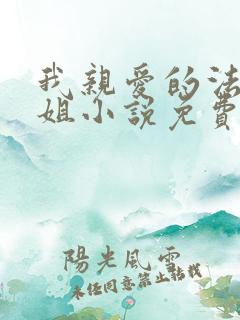 我親愛的法
姐小說免費
陽光風雲
未經同意禁止轉載